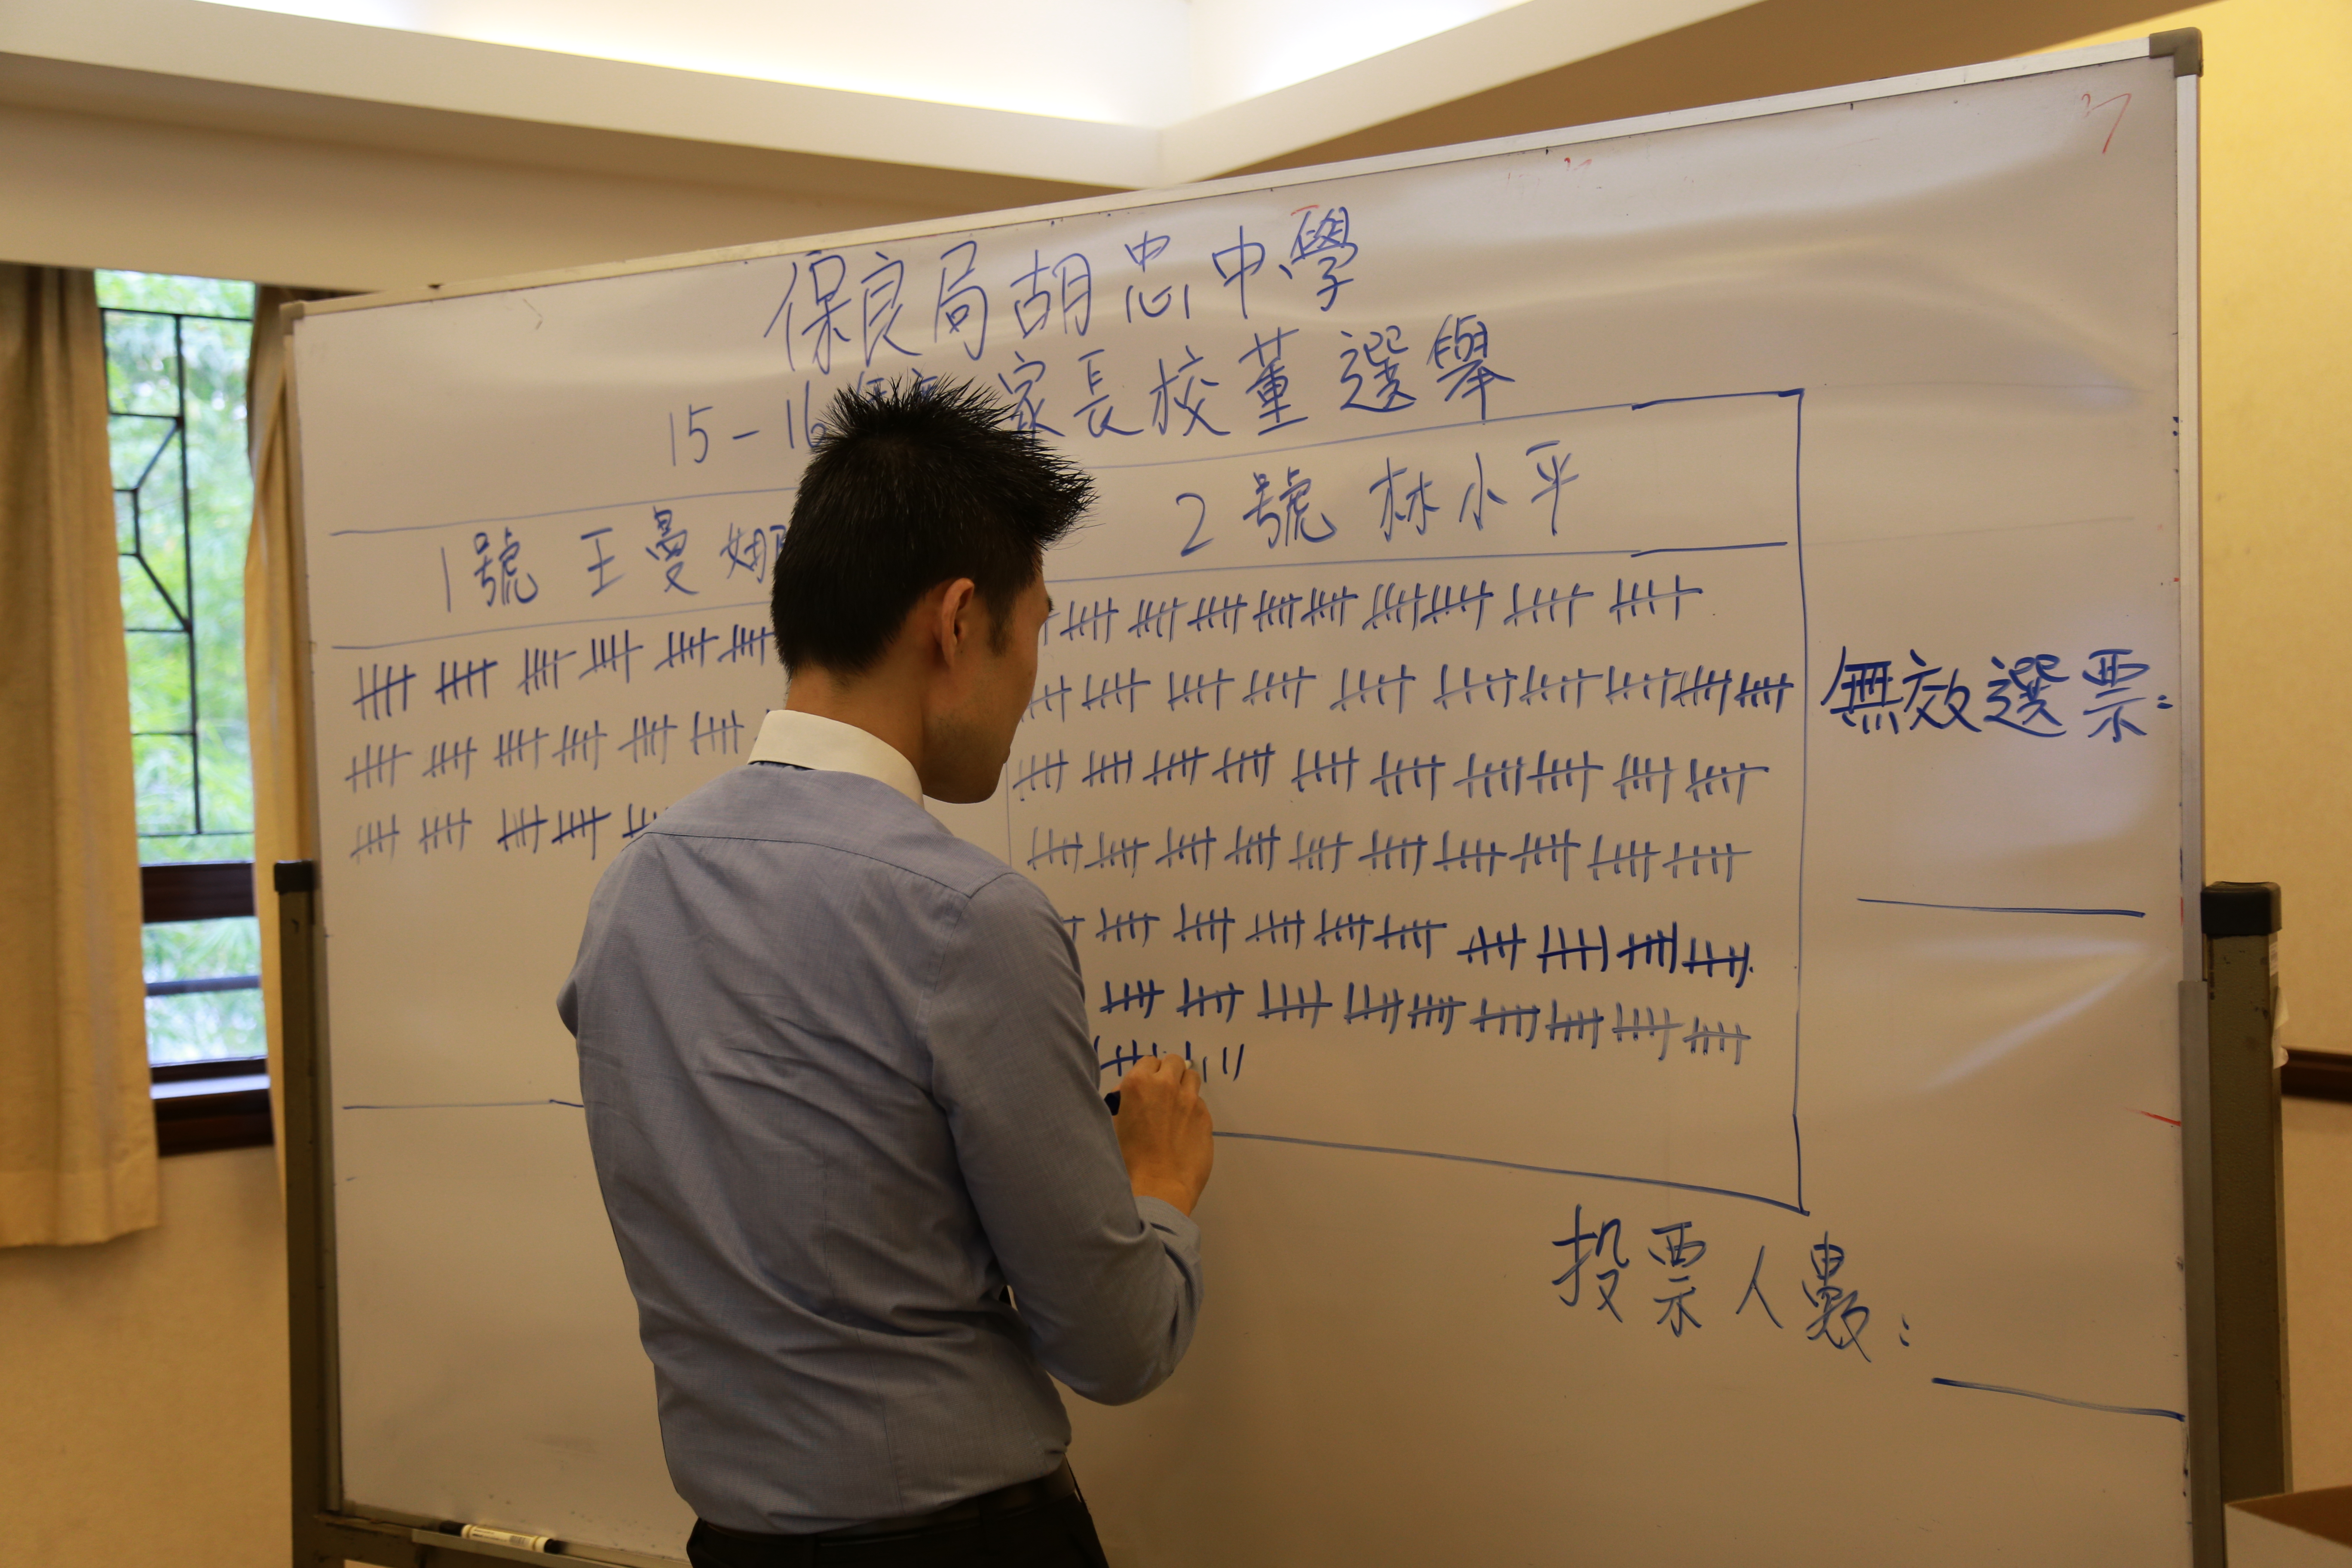 保良局胡忠中學
15-16 家長校董選舉
1號 王曼娜
2號 林小平
無效選票:
投票人數: